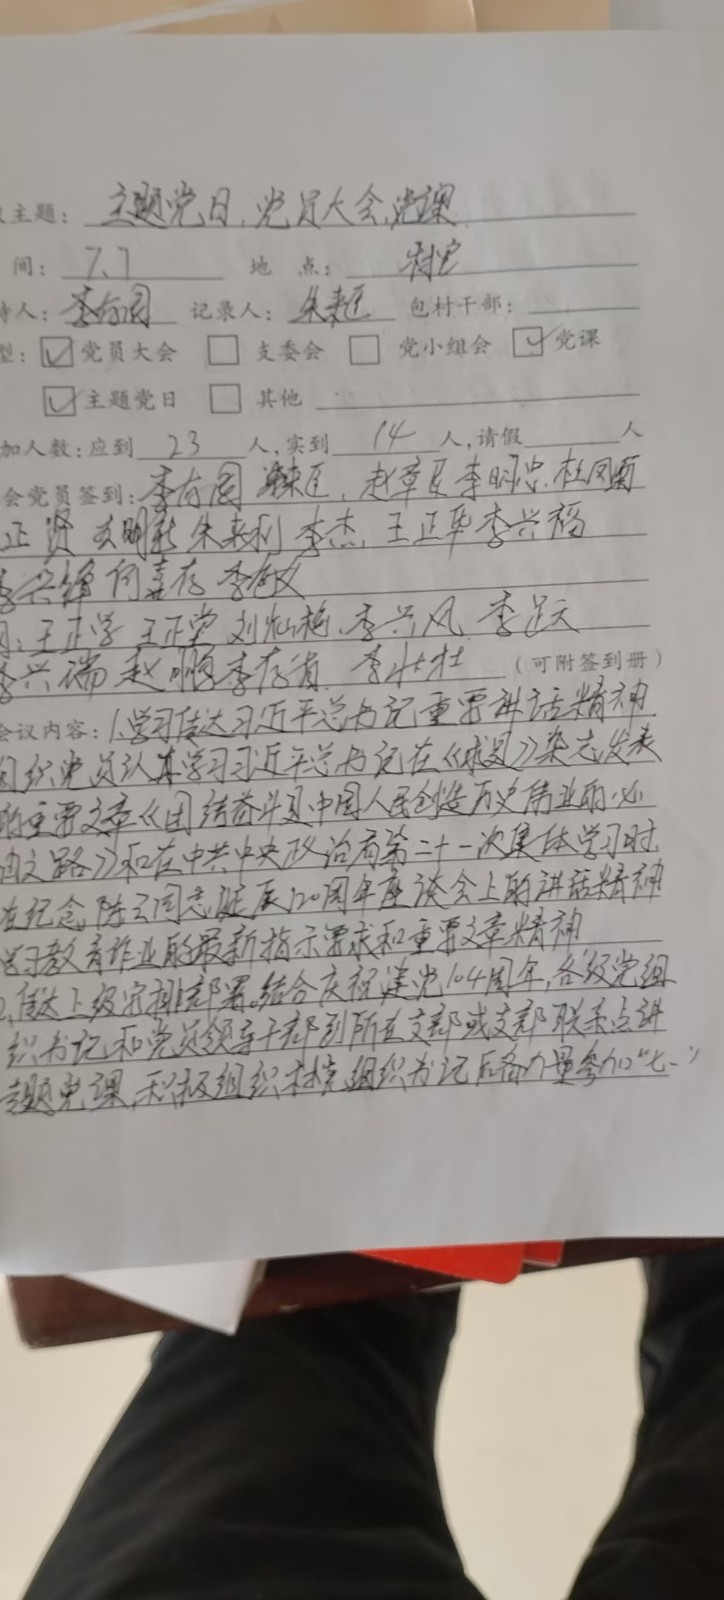 主题: 主题党日、党员大会、党课
间: 7.7 地 点: 村室
持人: 李存阁 记录人: 朱来臣 包村干部:
型: ☑ 党员大会 □ 支委会 □ 党小组会 ☑ 党课
☑ 主题党日 □ 其他
加人数: 应到 23 人, 实到 14 人, 请假 人
会党员签到: 李存阁 来臣、赵章臣 李明忠、杜凤菊
正贤 明新 朱来利 李杰、王正华 李兴福
李兴锋 何喜存 李存义
王正学 王正堂 刘灿梅、李兴风 李跃天
李兴瑞 赵鹏 李存省 李壮壮 (可附签到册)
会议内容: 1.学习传达习近平总书记重要讲话精神
组织党员认真学习习近平总书记在《求是》杂志发表
的重要文章《团结奋斗是中国人民创造历史伟业的必
由之路》和在中共中央政治局第二十一次集体学习时、
在纪念陈云同志诞辰120周年座谈会上的讲话精神
学习教育作业的最新指示要求和重要文章精神
2.传达上级安排部署。结合庆祝建党104周年,各级党组
织书记和党员领导干部到所在支部或支部联系点讲
专题党课,积极组织村党组织书记后备力量参加“七一”